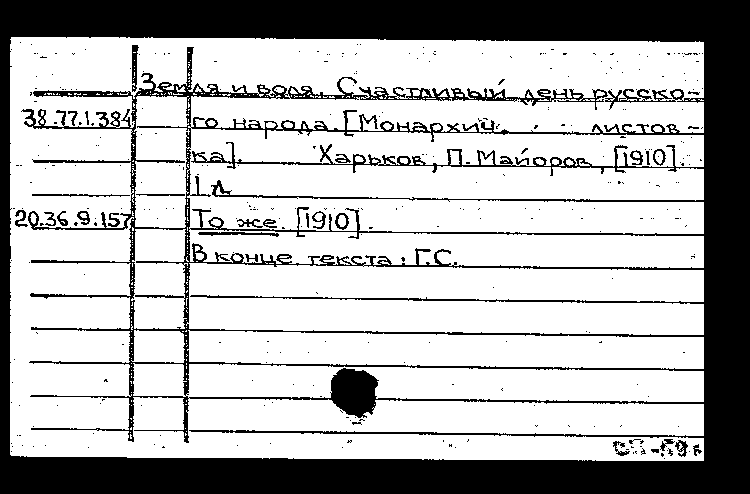 Земля и воля. Счастливый день русско-
38.77.1.384 го народа. [Монархич. листов-
ка]. Харьков, П. Майоров, [1910].
1 л
20.36.9.157 То же. [1910].
В конце текста: Г.С.